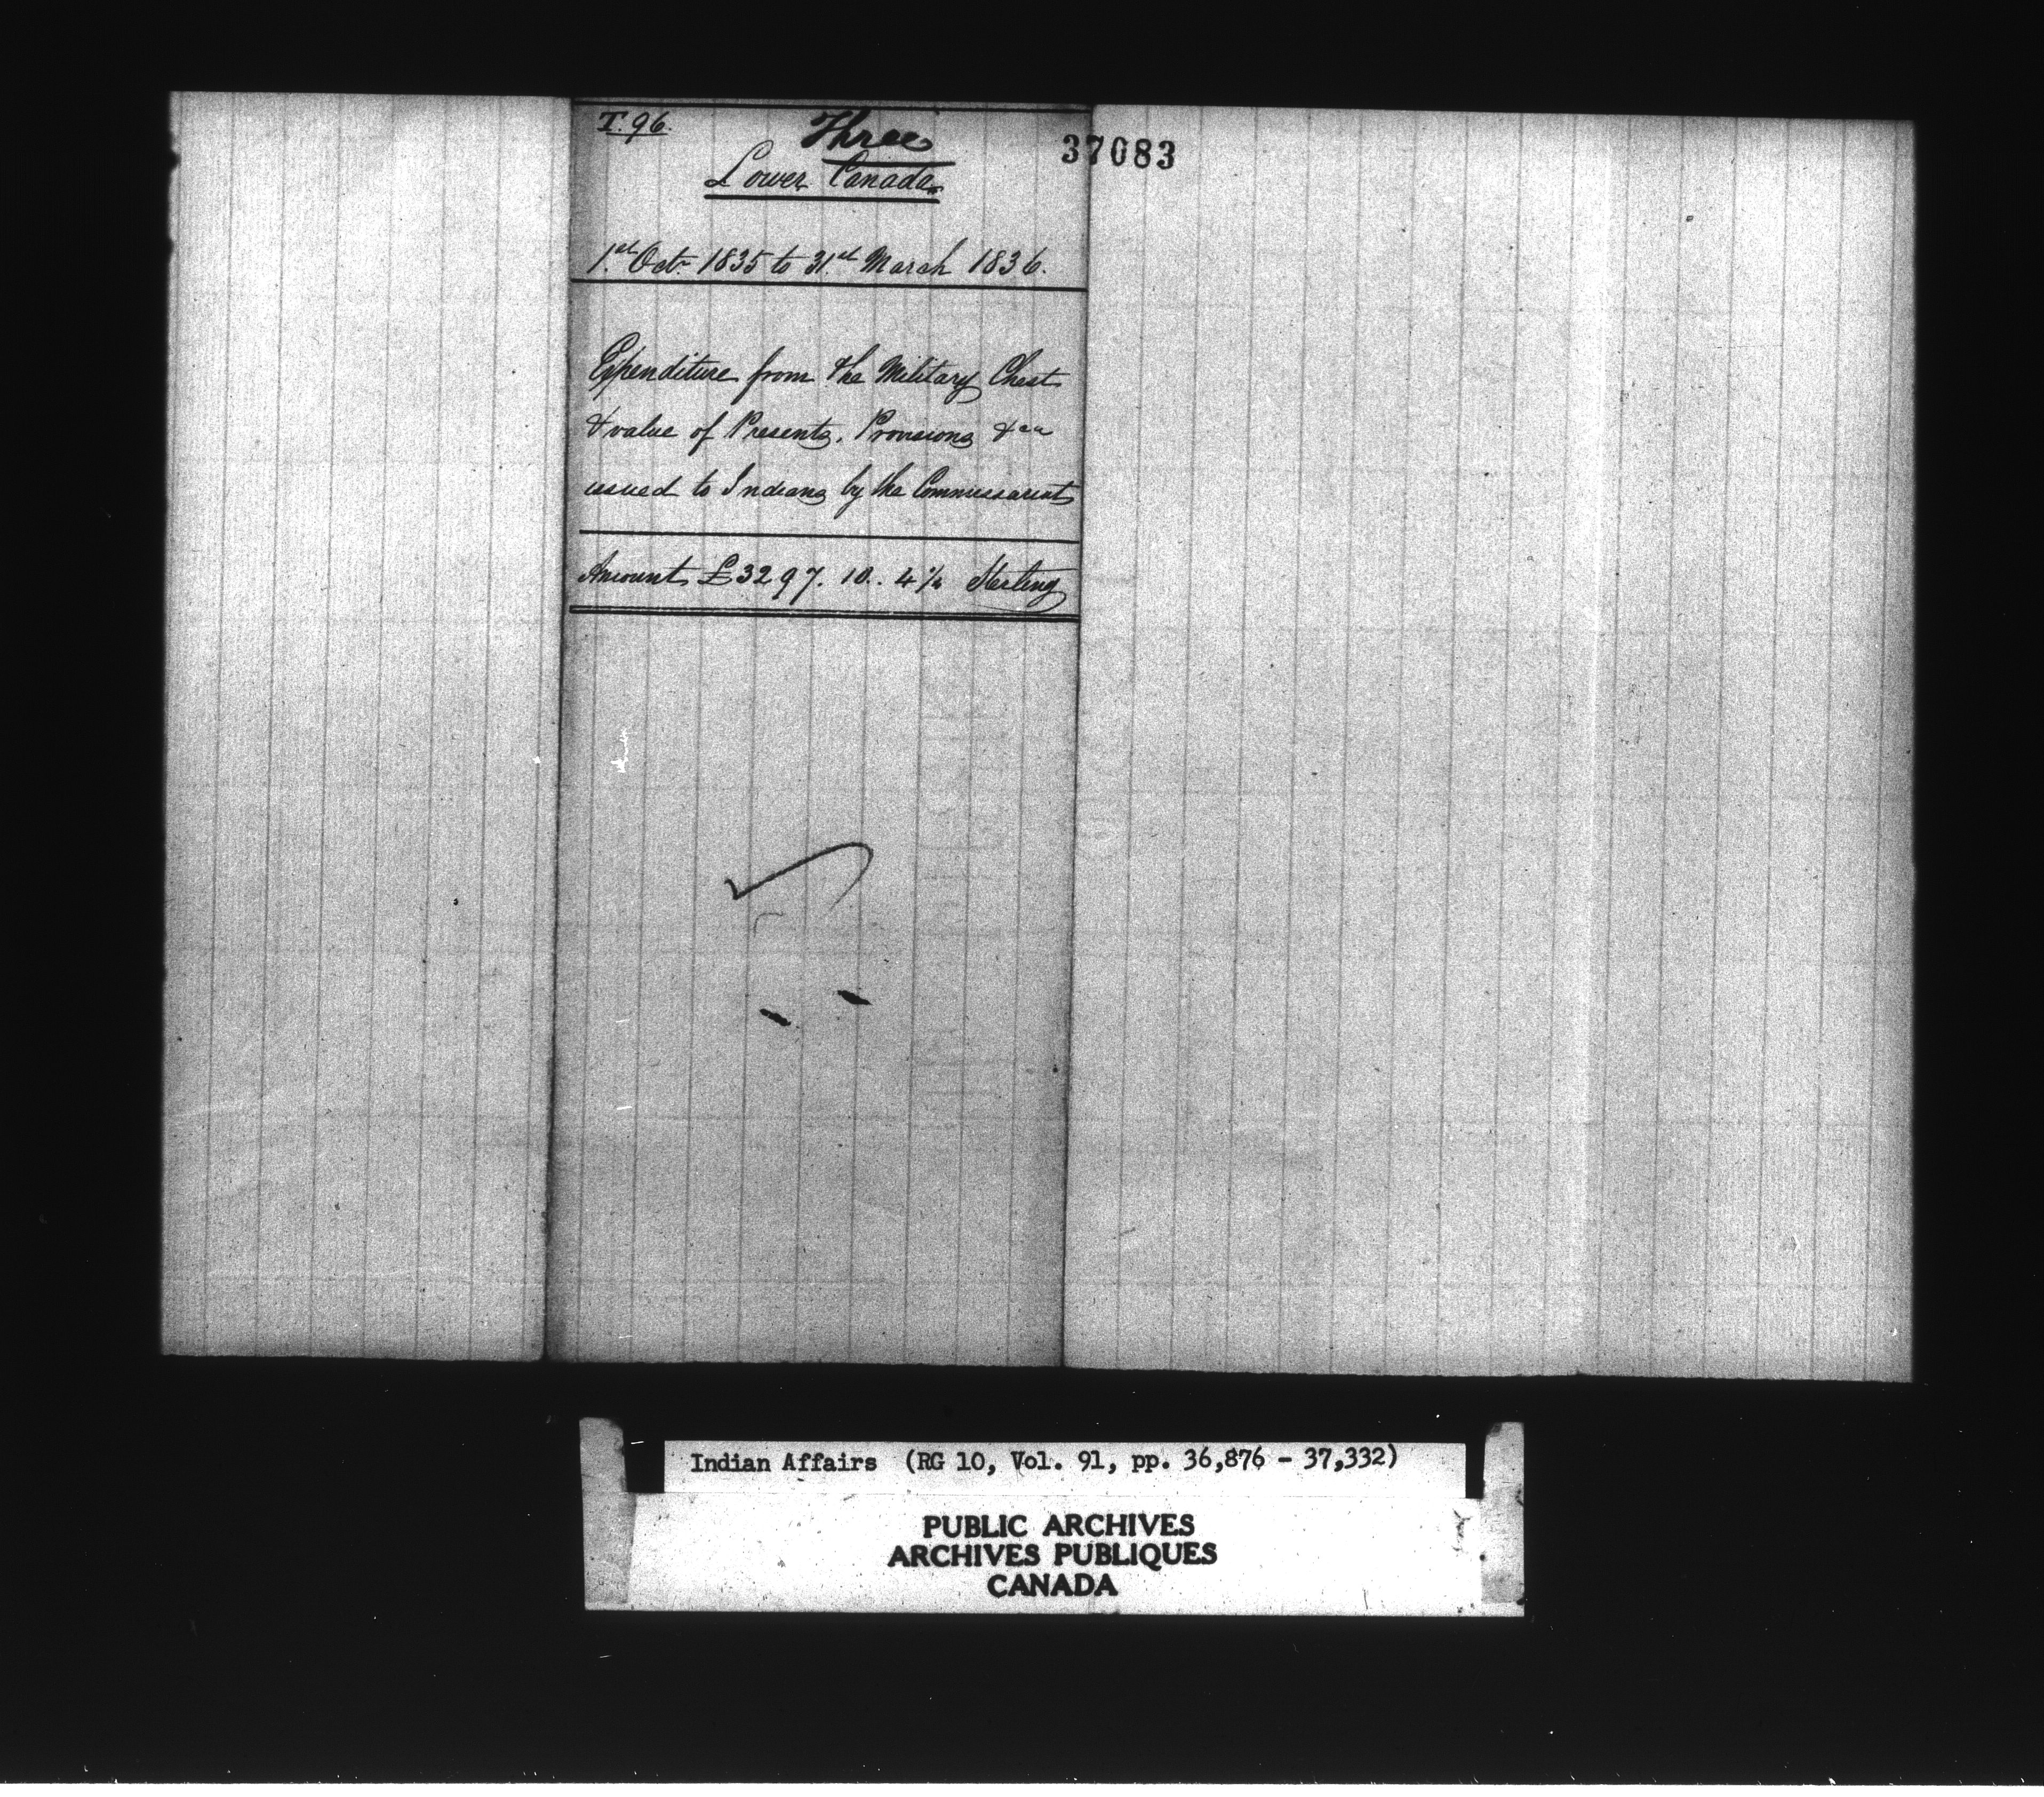 T. 96.
Three
37083
Lower Canada
1st Octr 1835 to 31st March 1836.
Expenditure from the Military Chest
& value of Presents, Provisions &ca
issued to Indians by the Commissariat
Amount £3297. 10.. 4 1/4 Sterling
Indian Affairs (RG 10, Vol. 91, pp. 36,876 - 37,332)
PUBLIC ARCHIVES
ARCHIVES PUBLIQUES
CANADA